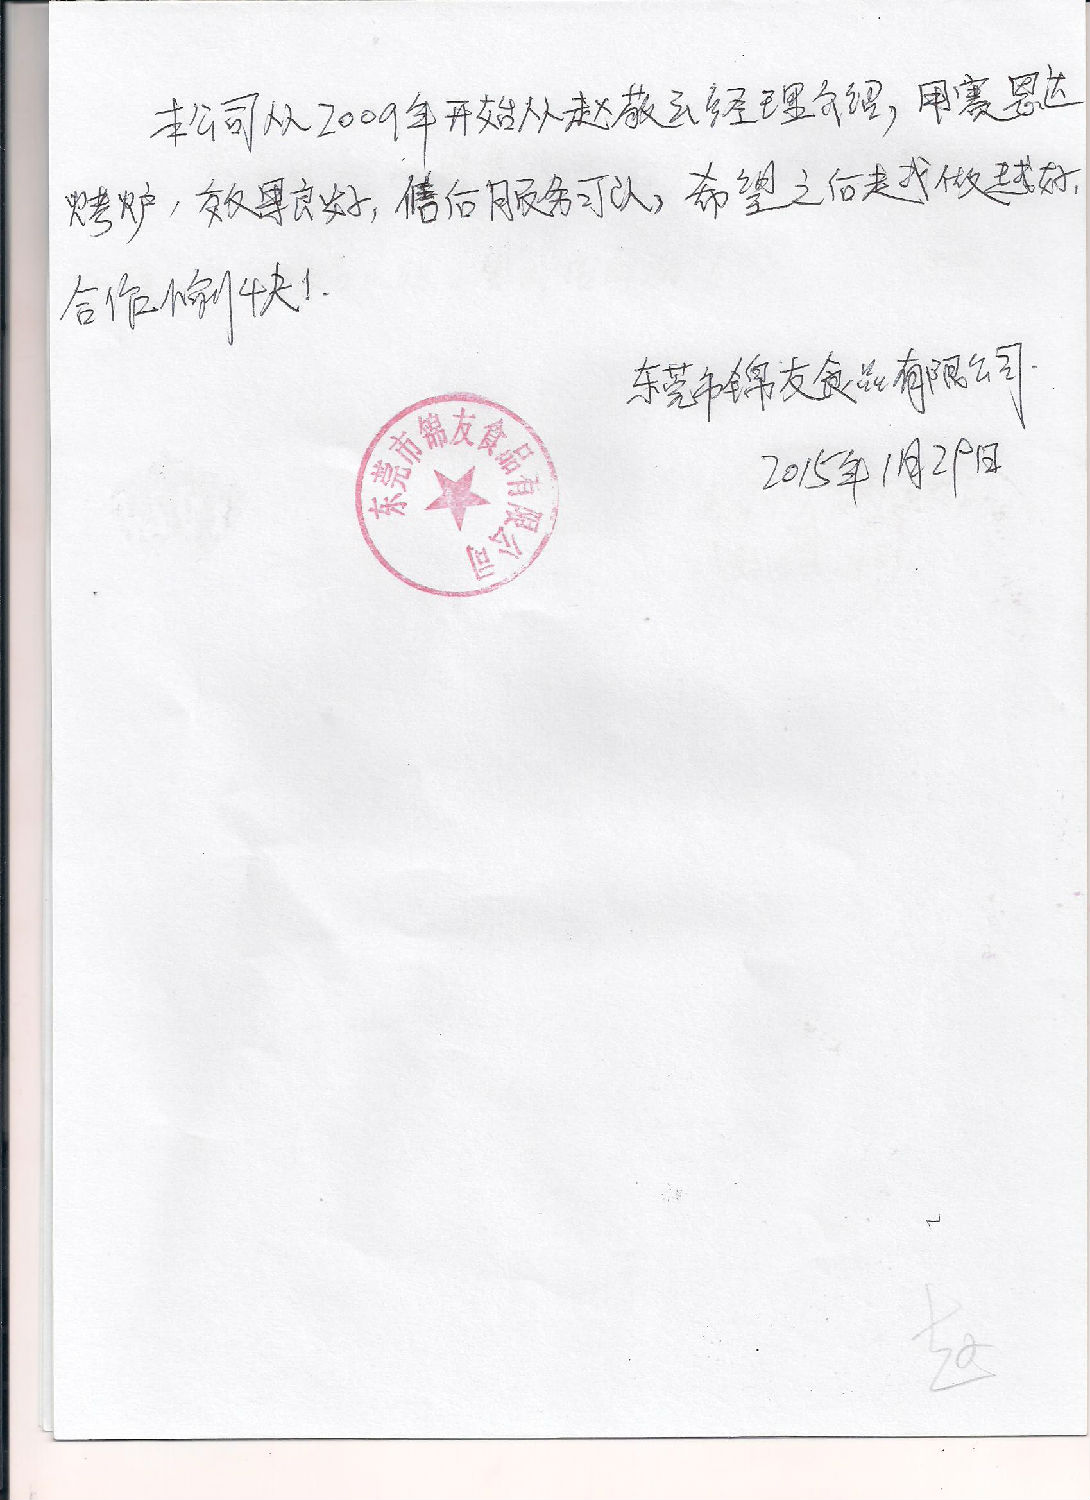 本公司从2009年开始从赵敬云经理介绍，用赛恩达
烤炉，效果良好，售后服务可以，希望之后走越做越好，
合作愉快！
东莞市锦友食品有限公司
2015年1月29日
东莞市锦友食品有限公司